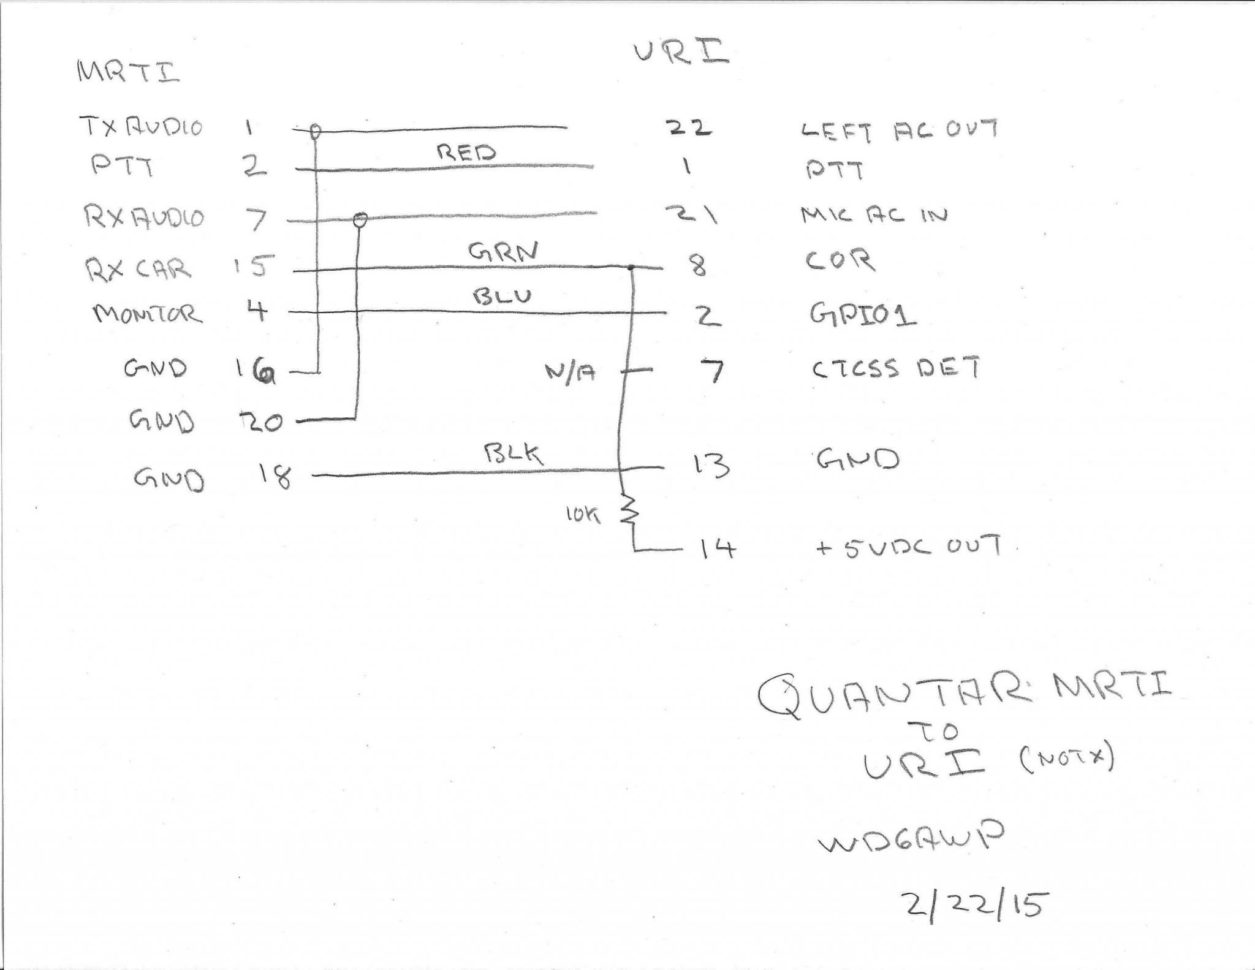 MRTI URI
TX AUDIO 1 22 LEFT AC OUT
PTT 2 RED 1 PTT
RX AUDIO 7 21 MIC AC IN
RX CAR 15 GRN 8 COR
MONITOR 4 BLU 2 GPIO1
GND 16 N/A 7 CTCSS DET
GND 20
GND 18 BLK 13 GND
10K
14 +5VDC OUT
QUANTAR MRTI
TO
URI (NOTX)
WD6AWP
2/22/15